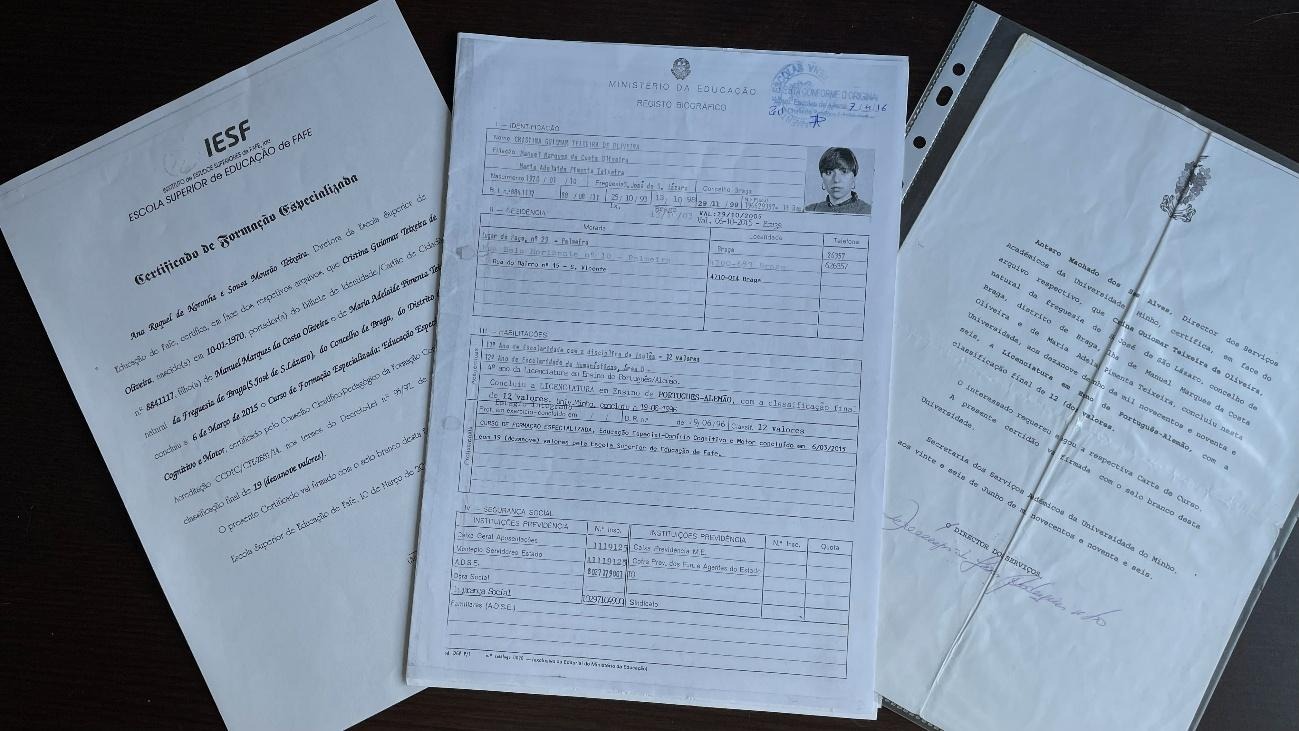 IESF
INSTITUTO DE ESTUDOS SUPERIORES DE FAFE,
ESCOLA SUPERIOR DE EDUCAÇÃO de FAFE
Certificado de Formação Especializada
Ana Raquel de Noronha e Sousa Mourão Teixeira, Diretora da Escola Superior de
Educação de Fafe, certifica, em face dos respetivos arquivos que Cristina Guiomar Teixeira de
Oliveira, nascido(a) em 10-01-1970, portador(a) do bilhete de Identidade/Cartão de Cidadão
nº 8841117, filho(a) de Manuel Marques da Costa Oliveira e de Maria Adelaide Pimenta
natural da Freguesia de Braga(S. José de S.Lázaro), do Concelho de Braga, do Distrito
concluiu a 6 de Março de 2015 o Curso de Formação Especializada: Educação
Cognitivo e Motor, certificado pelo Conselho Científico-Pedagógico da Formação
Acreditação nos termos do
classificação final de 19 (dezanove valores).
O presente Certificado vai firmado com o selo branco desta
Escola Superior de Educação de Fafe, 10 de Março de
MINISTÉRIO DA EDUCAÇÃO
REGISTO BIOGRÁFICO
CONFORME O ORIGINAL
I — IDENTIFICAÇÃO
Nome CRISTINA GUIOMAR TEIXEIRA DE OLIVEIRA
Filiação Manuel Marques da Costa Oliveira
Maria Adelaide Pimenta Teixeira
Nascimento 1970 / 01 / 10 Freguesia S. José de S. Lázaro Concelho Braga
B.I. n.º 8841117
VAL:29/10/2005
Val. 05-10-2015 -
II — RESIDÊNCIA
Morada Localidade Telefone
Lugar do Paço, nº 23 - Palmeira Braga 26357
626357
Rua do Bairro nº 15 - S. Vicente 4710-014 Braga
III — HABILITAÇÕES
11º Ano de Escolaridade com a disciplina de Inglês - 12 valores
12º Ano de Escolaridade
4º ano da Licenciatura em Ensino de Português/Alemão.
Concluiu a LICENCIATURA em Ensino de PORTUGUÊS-ALEMÃO, com a classificação final
de 12 valores.
Prof. em exercício-concluído em D.R. nº de 19/06/96 Classif. 12 valores
CURSO DE FORMAÇÃO ESPECIALIZADA, Educação Especial-Domínio Cognitivo e Motor concluído em 6/03/2015
com 19 (dezanove) valores pela Escola Superior de Educação de Fafe.
IV — SEGURANÇA SOCIAL
INSTITUIÇÕES PREVIDÊNCIA N.º Insc. INSTITUIÇÕES PREVIDÊNCIA N.º Insc. Quota
Caixa Geral Aposentações 1119125 Caixa Previdência M.E.
Montepio Servidores Estado 11119125 Cofre Prev. dos Func. e Agentes do Estado
A.D.S.E.
Obra Social
Segurança Social Sindicato
Familiares (A.D.S.E.)
Antero Machado dos Alves, Director dos Serviços
Académicos da Universidade Minho, certifica, em face do
arquivo respectivo, que Guiomar Teixeira de Oliveira,
natural da freguesia de José de São Lázaro, concelho de
Braga, distrito de Braga, de Manuel Marques da Costa
Oliveira e de Maria Pimenta Teixeira, concluiu nesta
Universidade, aos dezanove de mil novecentos e noventa e
seis, a Licenciatura em de Português-Alemão, com a
classificação final de 12 valores.
O interessado requereu a respectiva Carta de Curso.
A presente certidão vai firmada com o selo branco desta
Universidade.
Secretaria dos Serviços da Universidade do Minho,
aos vinte e seis de Junho de novecentos e noventa e seis.
O DIRECTOR DOS SERVIÇOS,